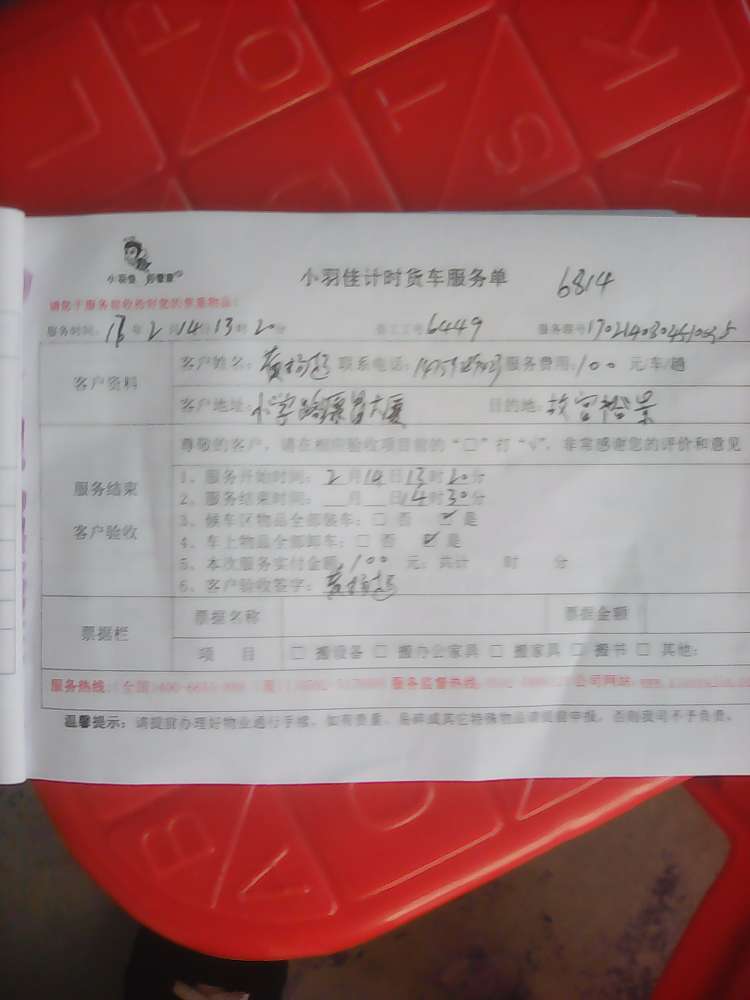 小羽佳 好管家
小羽佳计时货车服务单 6814
请您于服务前收拾好您的贵重物品!
服务时间: 年2月14日13时20分 员工工号6449 服务单号
客户资料
客户姓名: 联系电话: 服务费用:100 元/车/趟
客户地址: 大厦 目的地:故宫裕景
尊敬的客户,请在相应验收项目前的“□”打“√”,非常感谢您的评价和意见
服务结束
客户验收
1、服务开始时间:2月14日13时20分
2、服务结束时间:__月__日14时30分
3、候车区物品全部装车:□ 否 ☑ 是
4、车上物品全部卸车:□ 否 ☑ 是
5、本次服务实付金额:100 元;共计 时 分
6、客户验收签字:
票据栏
票据名称 票据金额
项 目 □ 搬设备 □ 搬办公家具 □ 搬家具 □ 搬书 □ 其他:
服务热线:(全国)400- 服务监督热线: 公司网站:
温馨提示:请提前办理好物业通行手续,如有贵重、易碎或其它特殊物品请提前申报,否则我司不予负责。